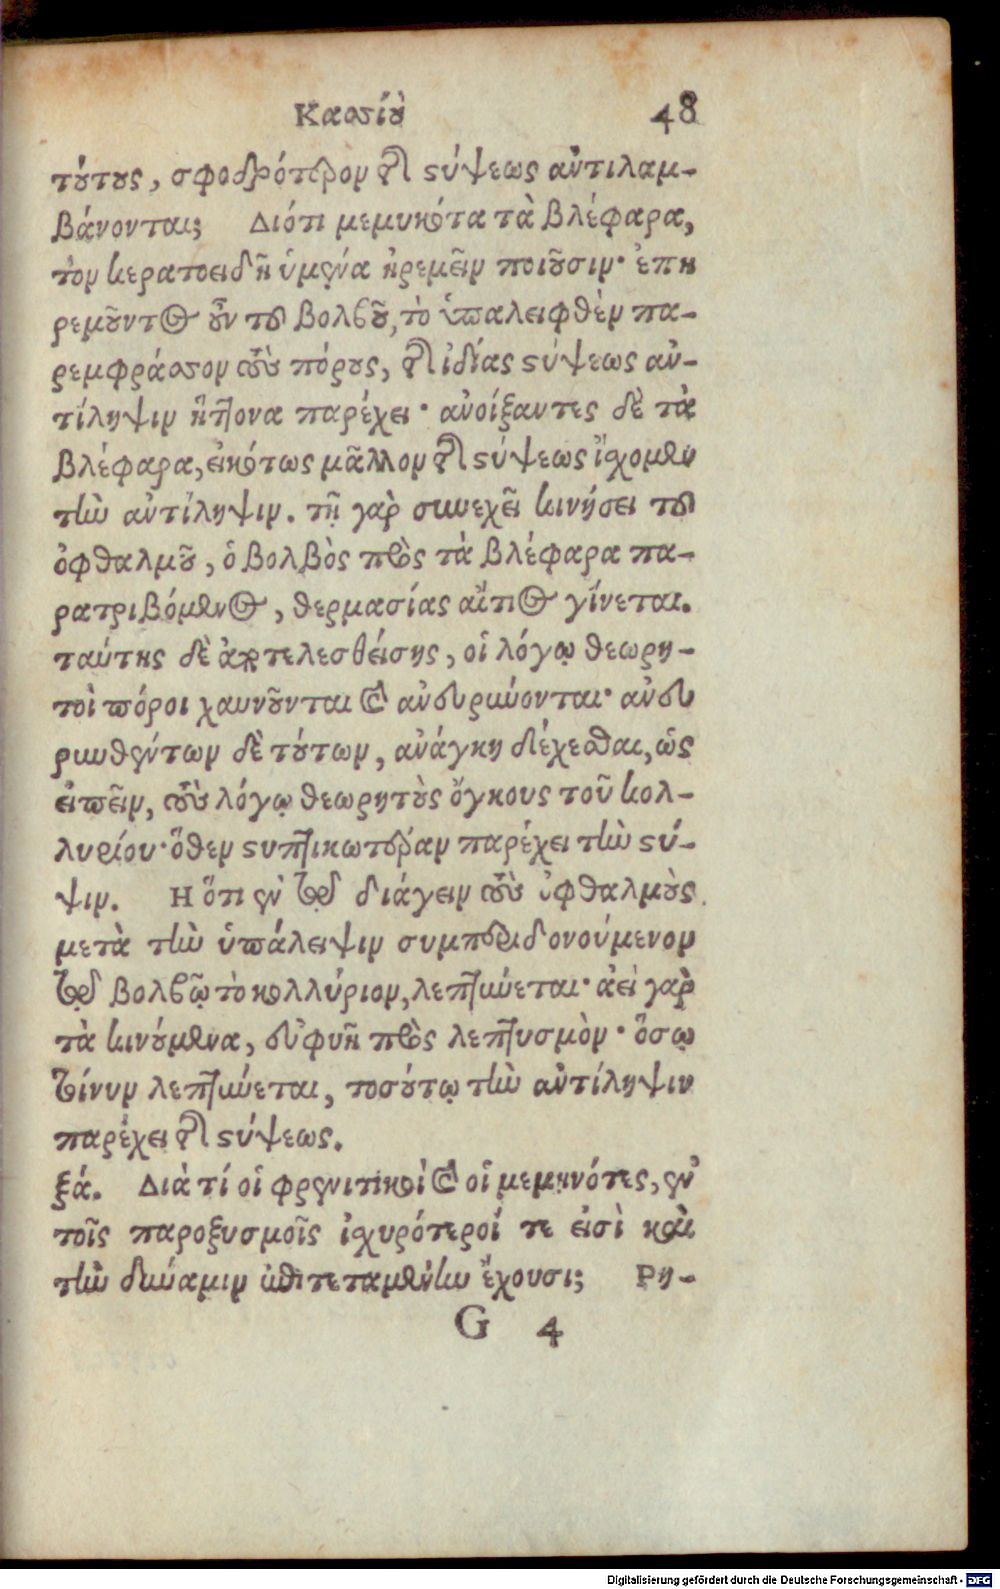 Κασσίου 48
τούτους, σφοδρότερον τῆς στύψεως ἀντιλαμ-
βάνονται; Διότι μεμυκότα τὰ βλέφαρα,
τὸν κερατοειδῆ ὑμένα ἠρεμεῖν ποιοῦσιν· ἐπη
ρεμοῦντος οὖν τοῦ βολβοῦ, τὸ ὑπαλειφθὲν πα-
ρεμφράσσον τοὺς πόρους, τῆς ἰδίας στύψεως ἀν-
τίληψιν ἥττονα παρέχει· ἀνοίξαντες δὲ τὰ
βλέφαρα, εἰκότως μᾶλλον τῆς στύψεως ἴσχομεν
τὴν ἀντίληψιν. τῇ γὰρ συνεχεῖ κινήσει τοῦ
ὀφθαλμοῦ, ὁ βολβὸς πρὸς τὰ βλέφαρα πα-
ρατριβόμενος, θερμασίας αἴτιος γίνεται.
ταύτης δὲ ἀποτελεσθείσης, οἱ λόγῳ θεωρη-
τοὶ πόροι χαυνοῦνται καὶ ἀνευρύνονται· ἀνευ
ρυνθέντων δὲ τούτων, ἀνάγκη διέχεσθαι, ὡς
εἰπεῖν, τοὺς λόγῳ θεωρητοὺς ὄγκους τοῦ κολ-
λυρίου· ὅθεν στυπτικωτέραν παρέχει τὴν στύ-
ψιν. Η ὅτι ἐν τῷ διάγειν τοὺς ὀφθαλμοὺς
μετὰ τὴν ὑπάλειψιν συμπεριδονούμενον
τῷ βολβῷ τὸ κολλύριον, λεπτύνεται· ἀεὶ γὰρ
τὰ κινούμενα, εὐφυῆ πρὸς λεπτυσμὸν· ὅσῳ
τοίνυν λεπτύνεται, τοσούτῳ τὴν ἀντίληψιν
παρέχει τῆς στύψεως.
ξά. Διὰ τί οἱ φρενιτικοὶ καὶ οἱ μεμηνότες, ἐν
τοῖς παροξυσμοῖς ἰσχυρότεροί τε εἰσὶ καὶ
τὴν δύναμιν ἐπιτεταμένην ἔχουσι; Ρη-
G 4
Digitalisierung gefördert durch die Deutsche Forschungsgemeinschaft - DFG